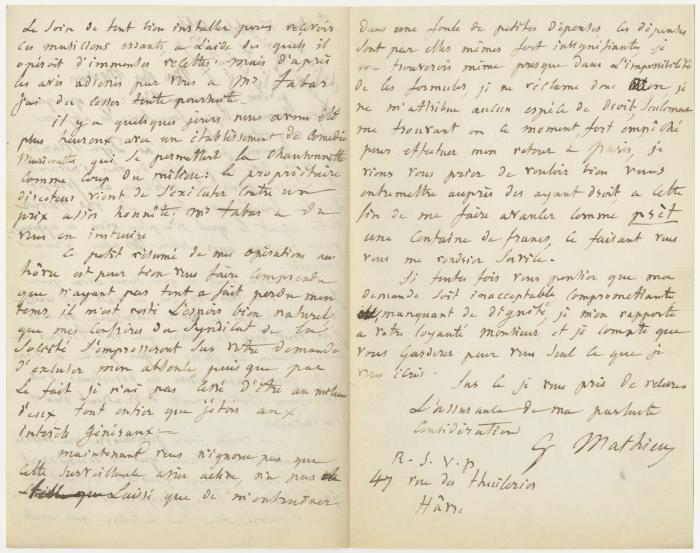 Le soin de tout bien installer pour recevoir
ces musiciens errants, à l'aide des quels il
opéroit d'immenses recettes: mais d'après
les avis adressés par vous a Mr Tabar
j'ai du cesser toute poursuite.
il y a quelques jours nous avons été
plus heureux avec un établissement de Comédie
qui se permettait la chansonnette
comme coup du milieu: le propriétaire
directeur vient de s'exécuter contre un
prix assés honnête; Mr Tabar a du
vous en instruire
Ce petit résumé de mes opérations au
hâvre est pour bien vous faire comprendre
que n'ayant pas tout a fait perdu mon
tems, il m'est resté l'espoir bien naturel
que mes confrères du Syndicat de la
Société s'empresseront sur votre demande
d'excuser mon absence puisque par
le fait je n'ai pas cessé d'être au milieu
d'eux tout entier que j'étois aux
interêts Généraux—
maintenant vous n'ignorez pas que
cette surveillance assés active, n'a pas
laissé que de m'entrainer
Dans une foule de petites dépenses, ces dépenses
sont par elles mêmes fort insignifiantes je
me trouverois même presque dans l'impossibilité
de les formuler, je ne réclame donc rien, je
ne m'attribue aucun espèce de droit, seulement
me trouvant en ce moment, fort empêché
pour effectuer mon retour a Paris, je
viens vous prier de vouloir bien vous
entremettre auprès des ayant droit, a cette
fin de me faire avancer comme prêt
une centaine de francs, ce faisant vous
vous me rendrier service.
Si toutes fois vous pensier que ma
demande soit inacceptable compromettante
manquant de dignité, je m'en rapporte
a votre loyauté Monsieur, et je compte que
vous garderez pour vous seul ce que je
vous écris.
Sur ce je vous prie de recevoir
L'assurance de ma parfaite
Considération
G Mathieu
R. S. V. P
47 rue des thuileries
Hâvre